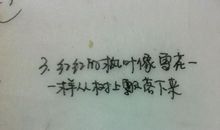 3.红红的枫叶像雪花一
一样从树上飘落下来